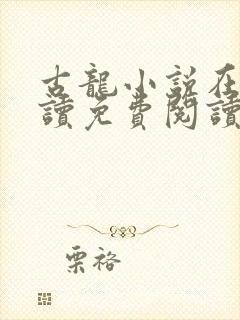 古龍小說在
讀免費閱讀
栗裕